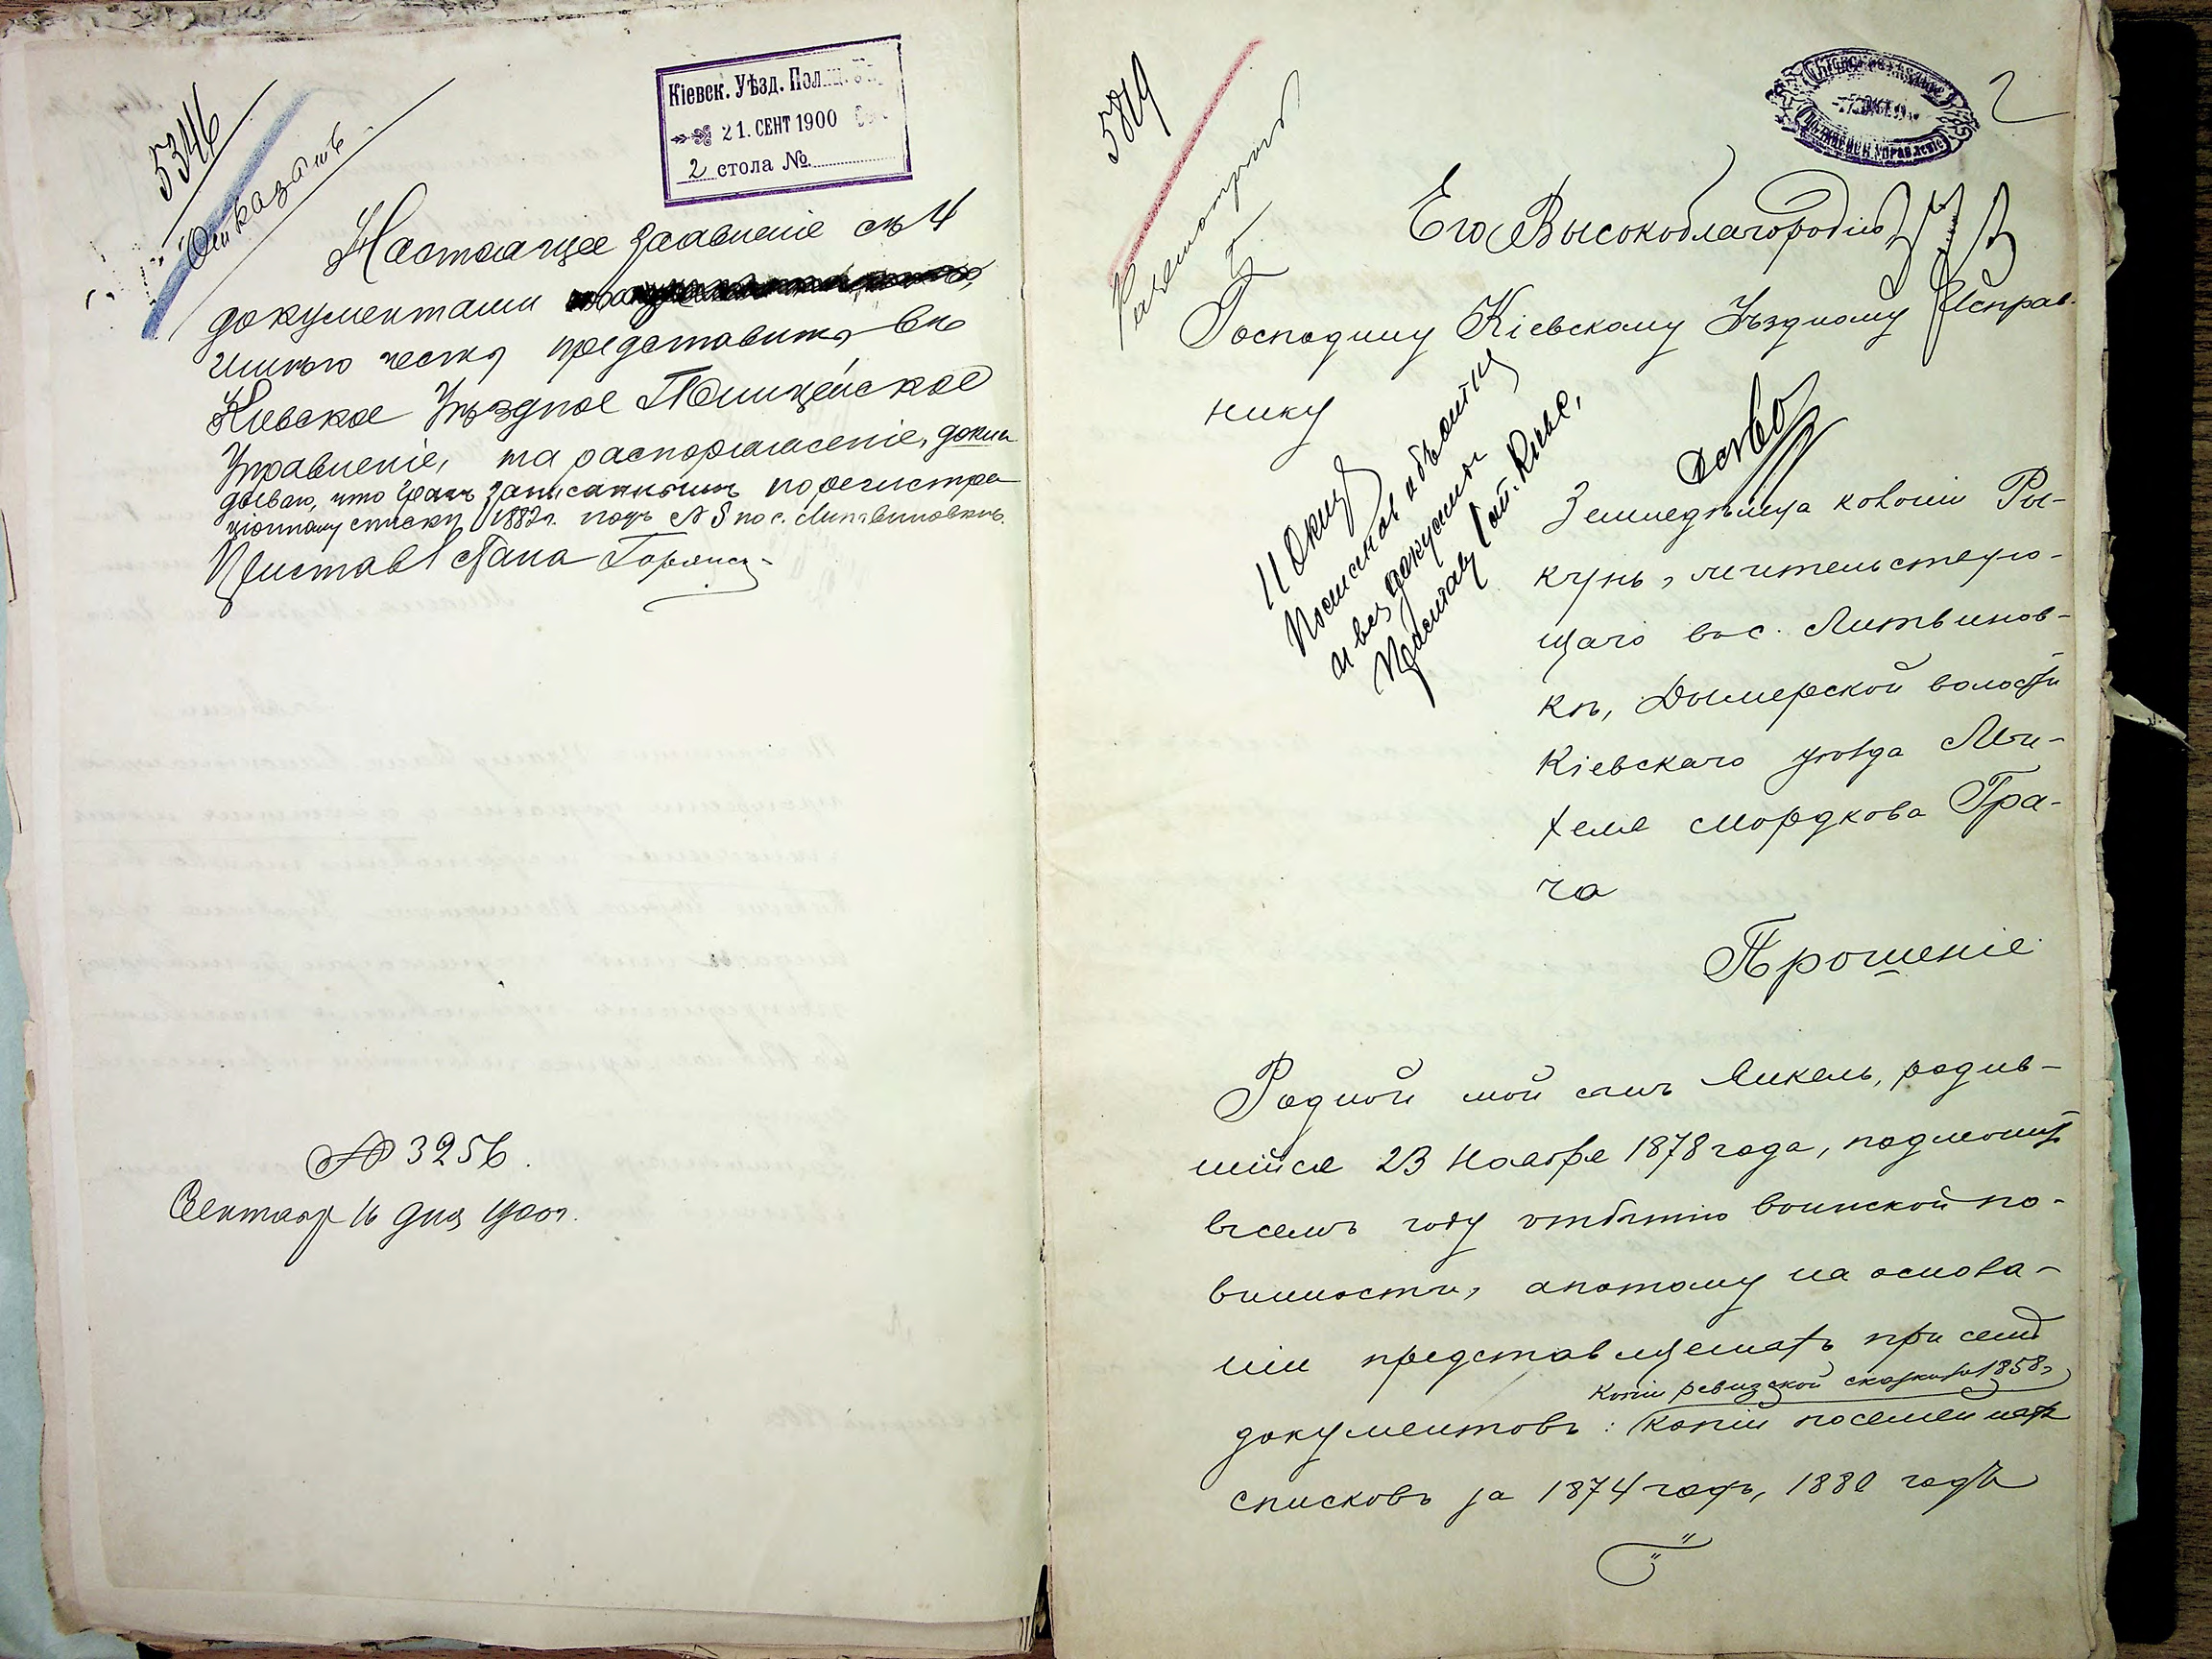 5346
Отказать
Кіевск. Уѣзд. Полиц.
21. СЕНТ 1900
2 стола №
Настоящее заявленіе съ 4
документами
имѣю честь представить въ
Кіевское Уѣздное Полицейское
Управленіе, на распоряженіе, докла
дываю, что Грачъ записанъ по регистра
ціонному списку 1882 г. подъ № 8 по с. Литвиновкѣ.
Приставъ 1 стана
№ 3256.
Сентября 16 дня 1900 г.
5819
2
Его Высокоблагородію
Господину Кіевскому Уѣздному Исправ-
нику
11 Окт
и безъ документ
Приставу 1 ст. Кіевс.
Земледѣльца колоніи Ры-
кунь, жительствую-
щаго въ с. Литвинов-
кѣ, Дымерской волости
Кіевскаго уѣзда Ми-
хеля Мордкова Гра-
ча
Прошеніе
Родной мой сынъ Янкель, родив-
шійся 23 Ноября 1878 года, подлежитъ
въ семъ году отбытію воинской по-
винности, а потому на основа-
ніи представляемыхъ при семъ
копіи ревизской сказки за 1858 г
документовъ: копій посемейныхъ
списковъ за 1874 годъ, 1880 годъ